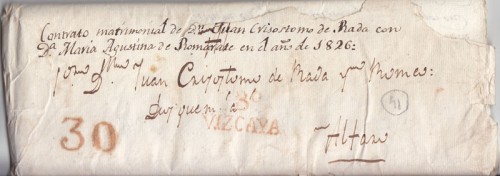 Contrato matrimonial de Dn Juan Crisostomo de Rada con
Da. Maria Agustina de Romarate en el año de 1826:
Juan Crisostomo de Rada
30
VIZCAYA
30
Alfaro